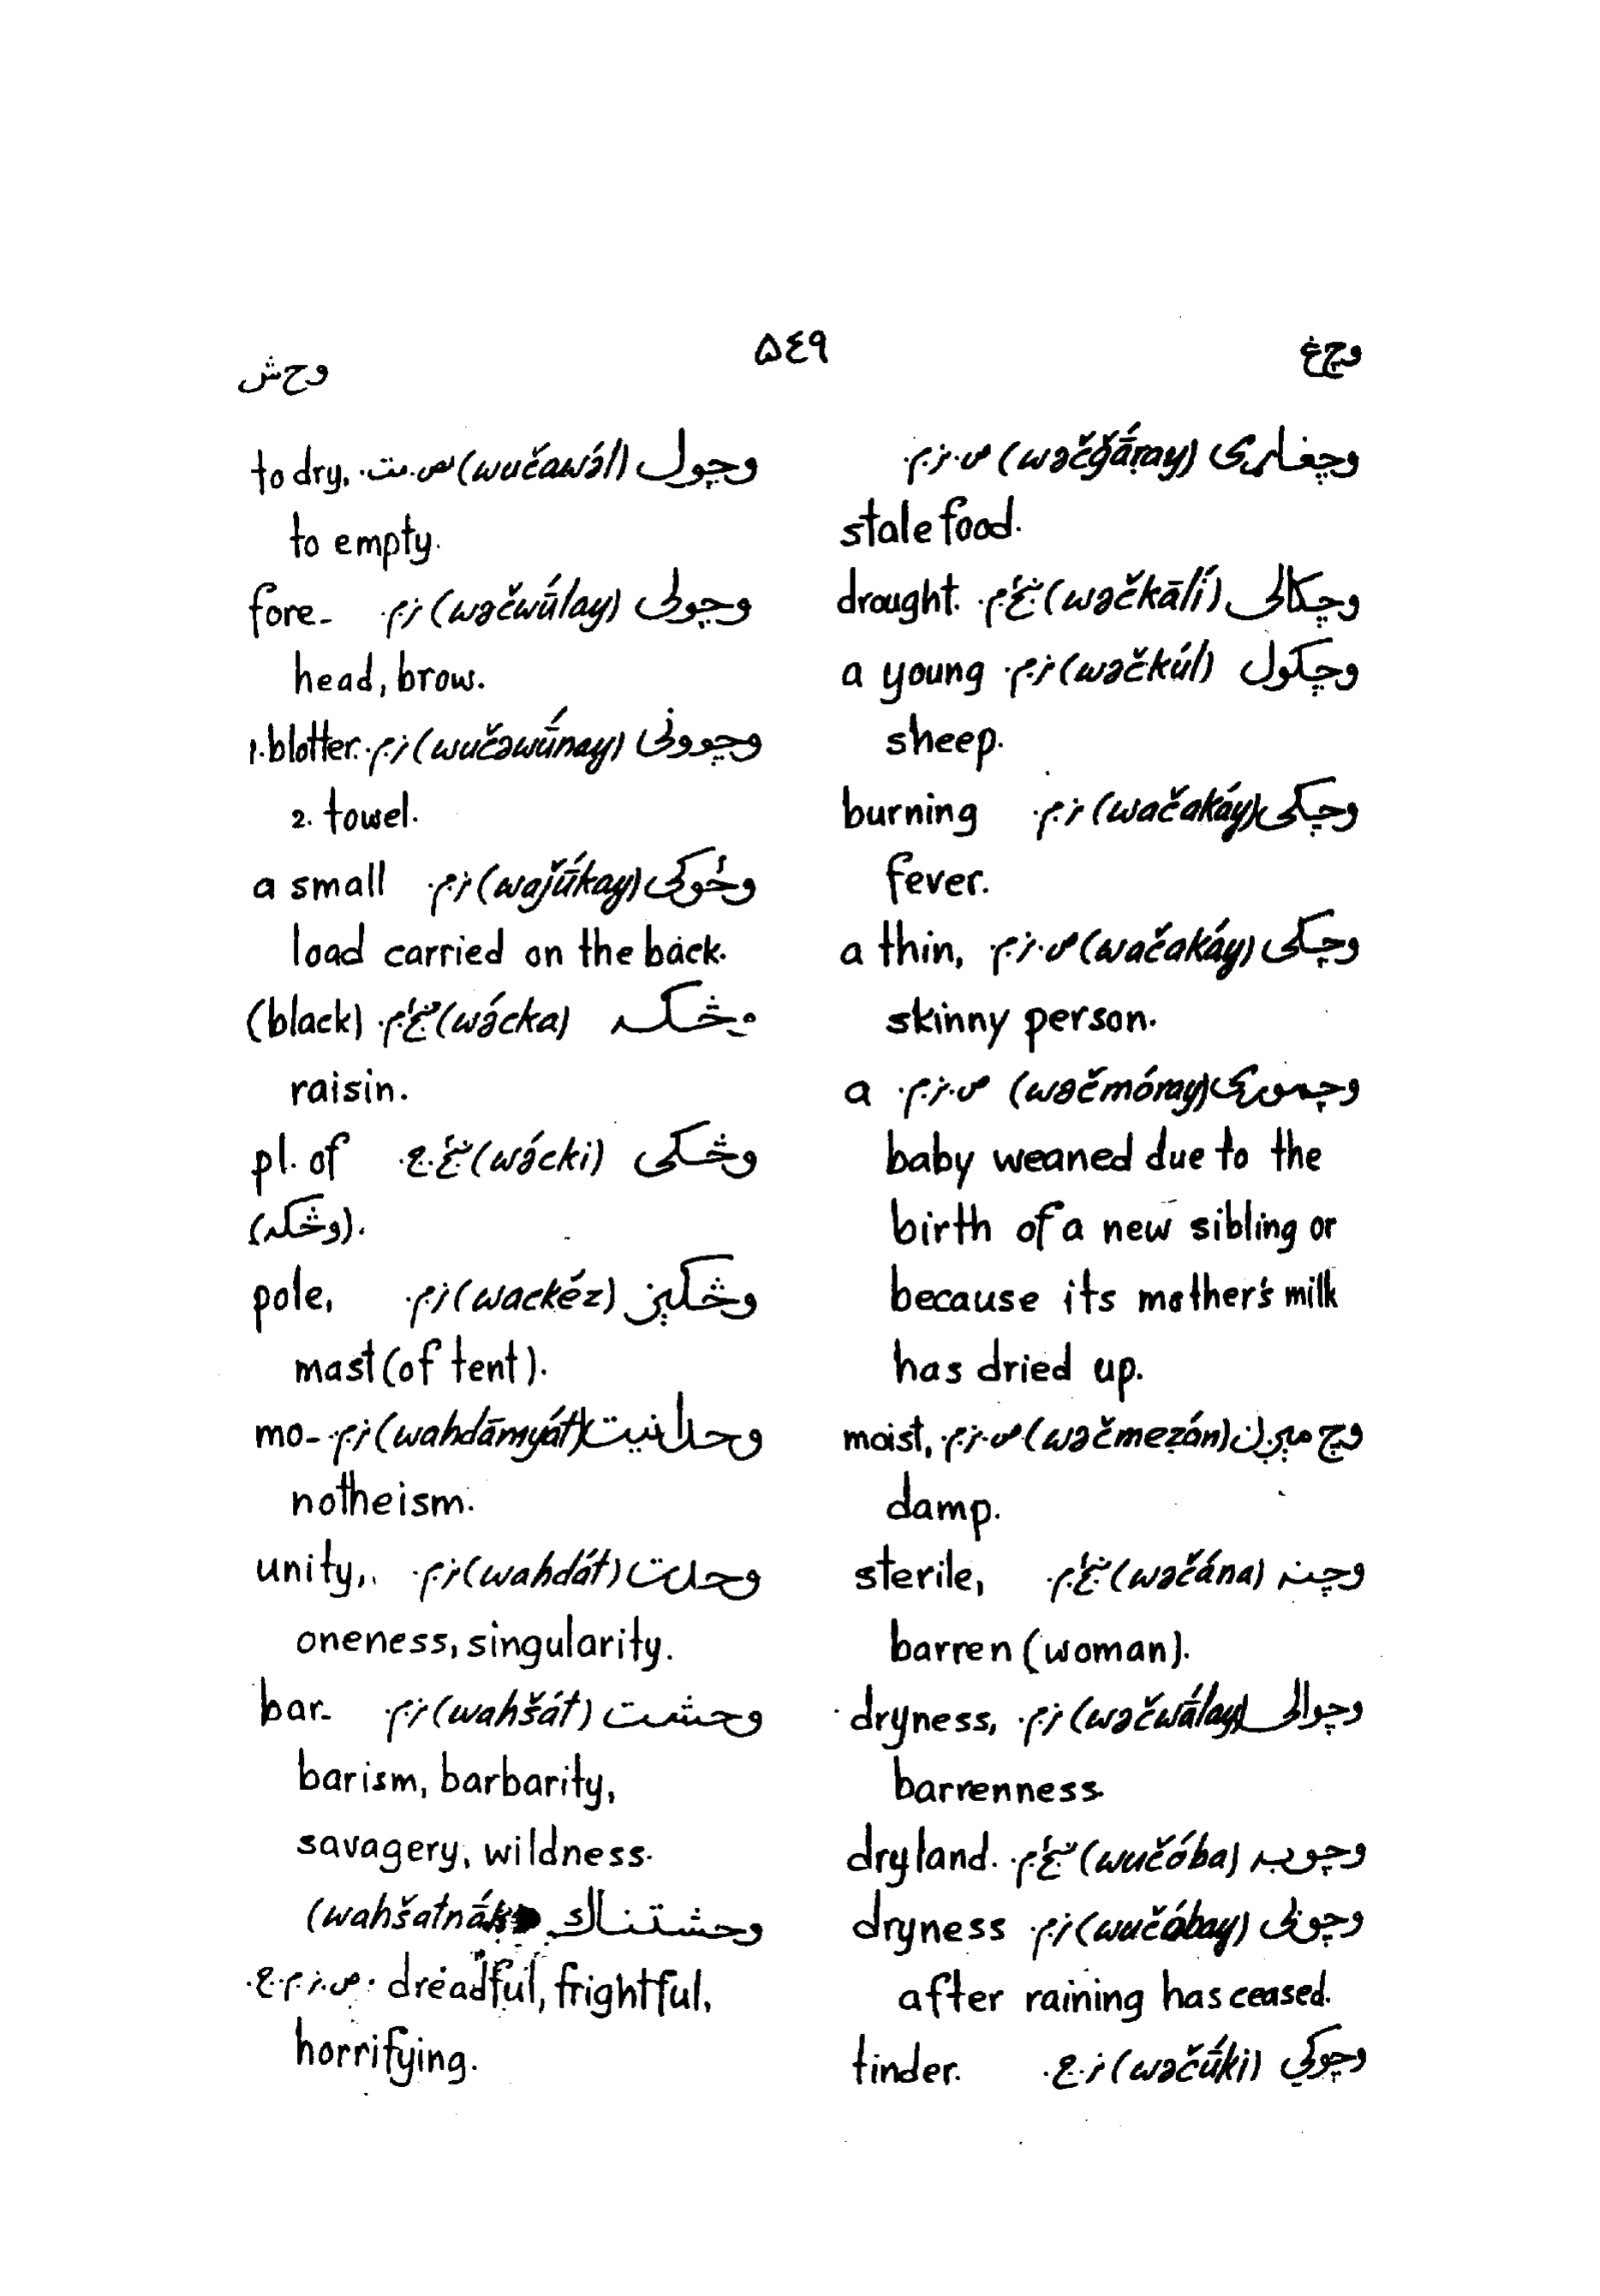 وچغ
۵٤۹
وحش
وچغاړی (wəčğā́ṛay) ص.ز.م.
stale food.
وچکالی (wəčkālí) ښځ.م. drought.
وچکول (wəčkúl) ز.م. a young
sheep.
وچکی (wačakáy) ز.م. burning
fever.
وچکی (wačakáy) ص.ز.م. a thin,
skinny person.
وچموری (wəčmóray) ص.ز.م. a
baby weaned due to the
birth of a new sibling or
because its mother's milk
has dried up.
وچ مېږن (wəčmeẓán) ص.ز.م. moist,
damp.
وچنه (wəčána) ښځ.م. sterile,
barren (woman).
وچوالی (wəčwā́lay) ز.م. dryness,
barrenness.
وچوبه (wučóba) ښځ.م. dry land.
وچوبی (wučóbay) ز.م. dryness
after raining has ceased.
وچوکي (wəčū́ki) ز.ج. tinder.
وچول (wučawə́l) ص.مت. to dry,
to empty.
وچولی (wəčwū́lay) ز.م. fore-
head, brow.
وچوونی (wučəwū́nay) ز.م. 1. blotter.
2. towel.
وځوکی (waǰū́kay) ز.م. a small
load carried on the back.
وڅکه (wə́cka) ښځ.م. (black)
raisin.
وڅکی (wə́cki) ښځ.ج. pl. of
(وڅکه).
وڅکېز (wackéz) ز.م. pole,
mast (of tent).
وحدانیت (wahdānyát) ز.م. mo-
notheism.
وحدت (wahdát) ز.م. unity,
oneness, singularity.
وحشت (wahšát) ز.م. bar-
barism, barbarity,
savagery, wildness.
وحشتناک (wahšatnā́k)
ص.ز.م.ج. dreadful, frightful,
horrifying.